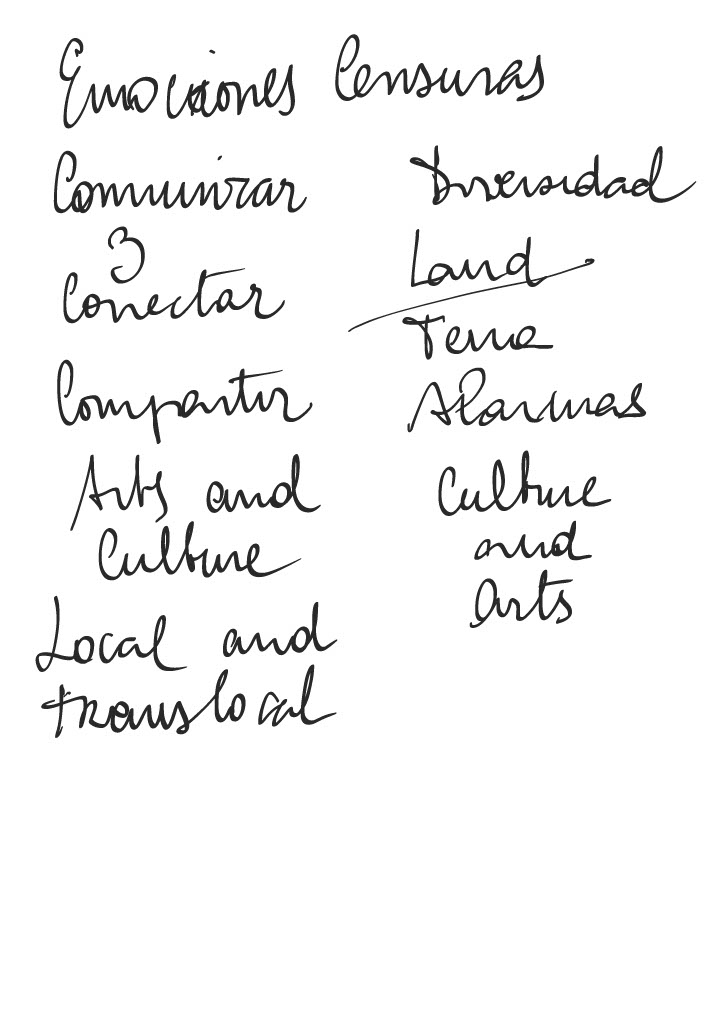 Emociones Censuras
Comunizar
3
Conectar
Compartir
Arts and
Culture
Local and
translocal
Diversidad
Land
Terra
Alarmas
Culture
and
arts